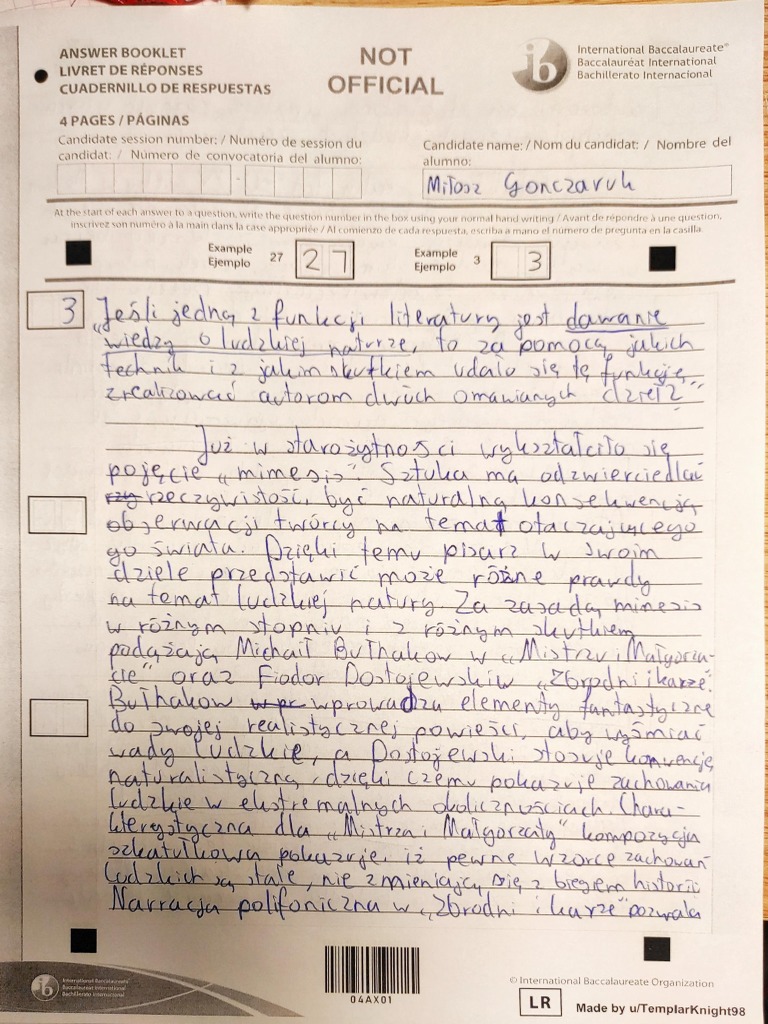 ANSWER BOOKLET
LIVRET DE RÉPONSES
CUADERNILLO DE RESPUESTAS
NOT
OFFICIAL
ib
International Baccalaureate®
Baccalauréat International
Bachillerato Internacional
4 PAGES / PÁGINAS
Candidate session number: / Numéro de session du
candidat: / Número de convocatoria del alumno:
Candidate name: / Nom du candidat: / Nombre del
alumno:
Miłosz Gonczaruk
At the start of each answer to a question, write the question number in the box using your normal hand writing / Avant de répondre à une question,
inscrivez son numéro à la main dans la case appropriée / Al comienzo de cada respuesta, escriba a mano el número de pregunta en la casilla.
Example
Ejemplo
27
27
Example
Ejemplo
3
3
3
Jeśli jedną z funkcji literatury jest dawanie
"wiedzy o ludzkiej naturze, to za pomocą jakich
technik i z jakim skutkiem udało się tę funkcję
zrealizować autorom dwóch omawianych dzieł?"
Już w starożytności wykształciło się
pojęcie „mimesis". Sztuka ma odzwierciedlać
rzeczywistość, być naturalną konsekwencją
obserwacji twórcy na temat otaczającego
go świata. Dzięki temu pisarz w swoim
dziele przedstawić może różne prawdy
na temat ludzkiej natury. Za zasadą mimesis
w różnym stopniu i z różnym skutkiem
podążają Michaił Bułhakow w „Mistrzu i Małgorza-
cie" oraz Fiodor Dostojewski w „Zbrodni i karze".
Bułhakow wprowadza elementy fantastyczne
do swojej realistycznej powieści, aby wyśmiać
wady ludzkie, a Dostojewski stosuje konwencję
naturalistyczną, dzięki czemu pokazuje zachowania
ludzkie w ekstremalnych okolicznościach. Chara-
kterystyczna dla „Mistrza i Małgorzaty" kompozycja
szkatułkowa pokazuje, iż pewne wzorce zachowań
ludzkich są stałe, nie zmieniają się z biegiem historii.
Narracja polifoniczna w „Zbrodni i karze" pozwala
ib
International Baccalaureate
Baccalauréat International
Bachillerato Internacional
04AX01
© International Baccalaureate Organization
LR
Made by u/TemplarKnight98